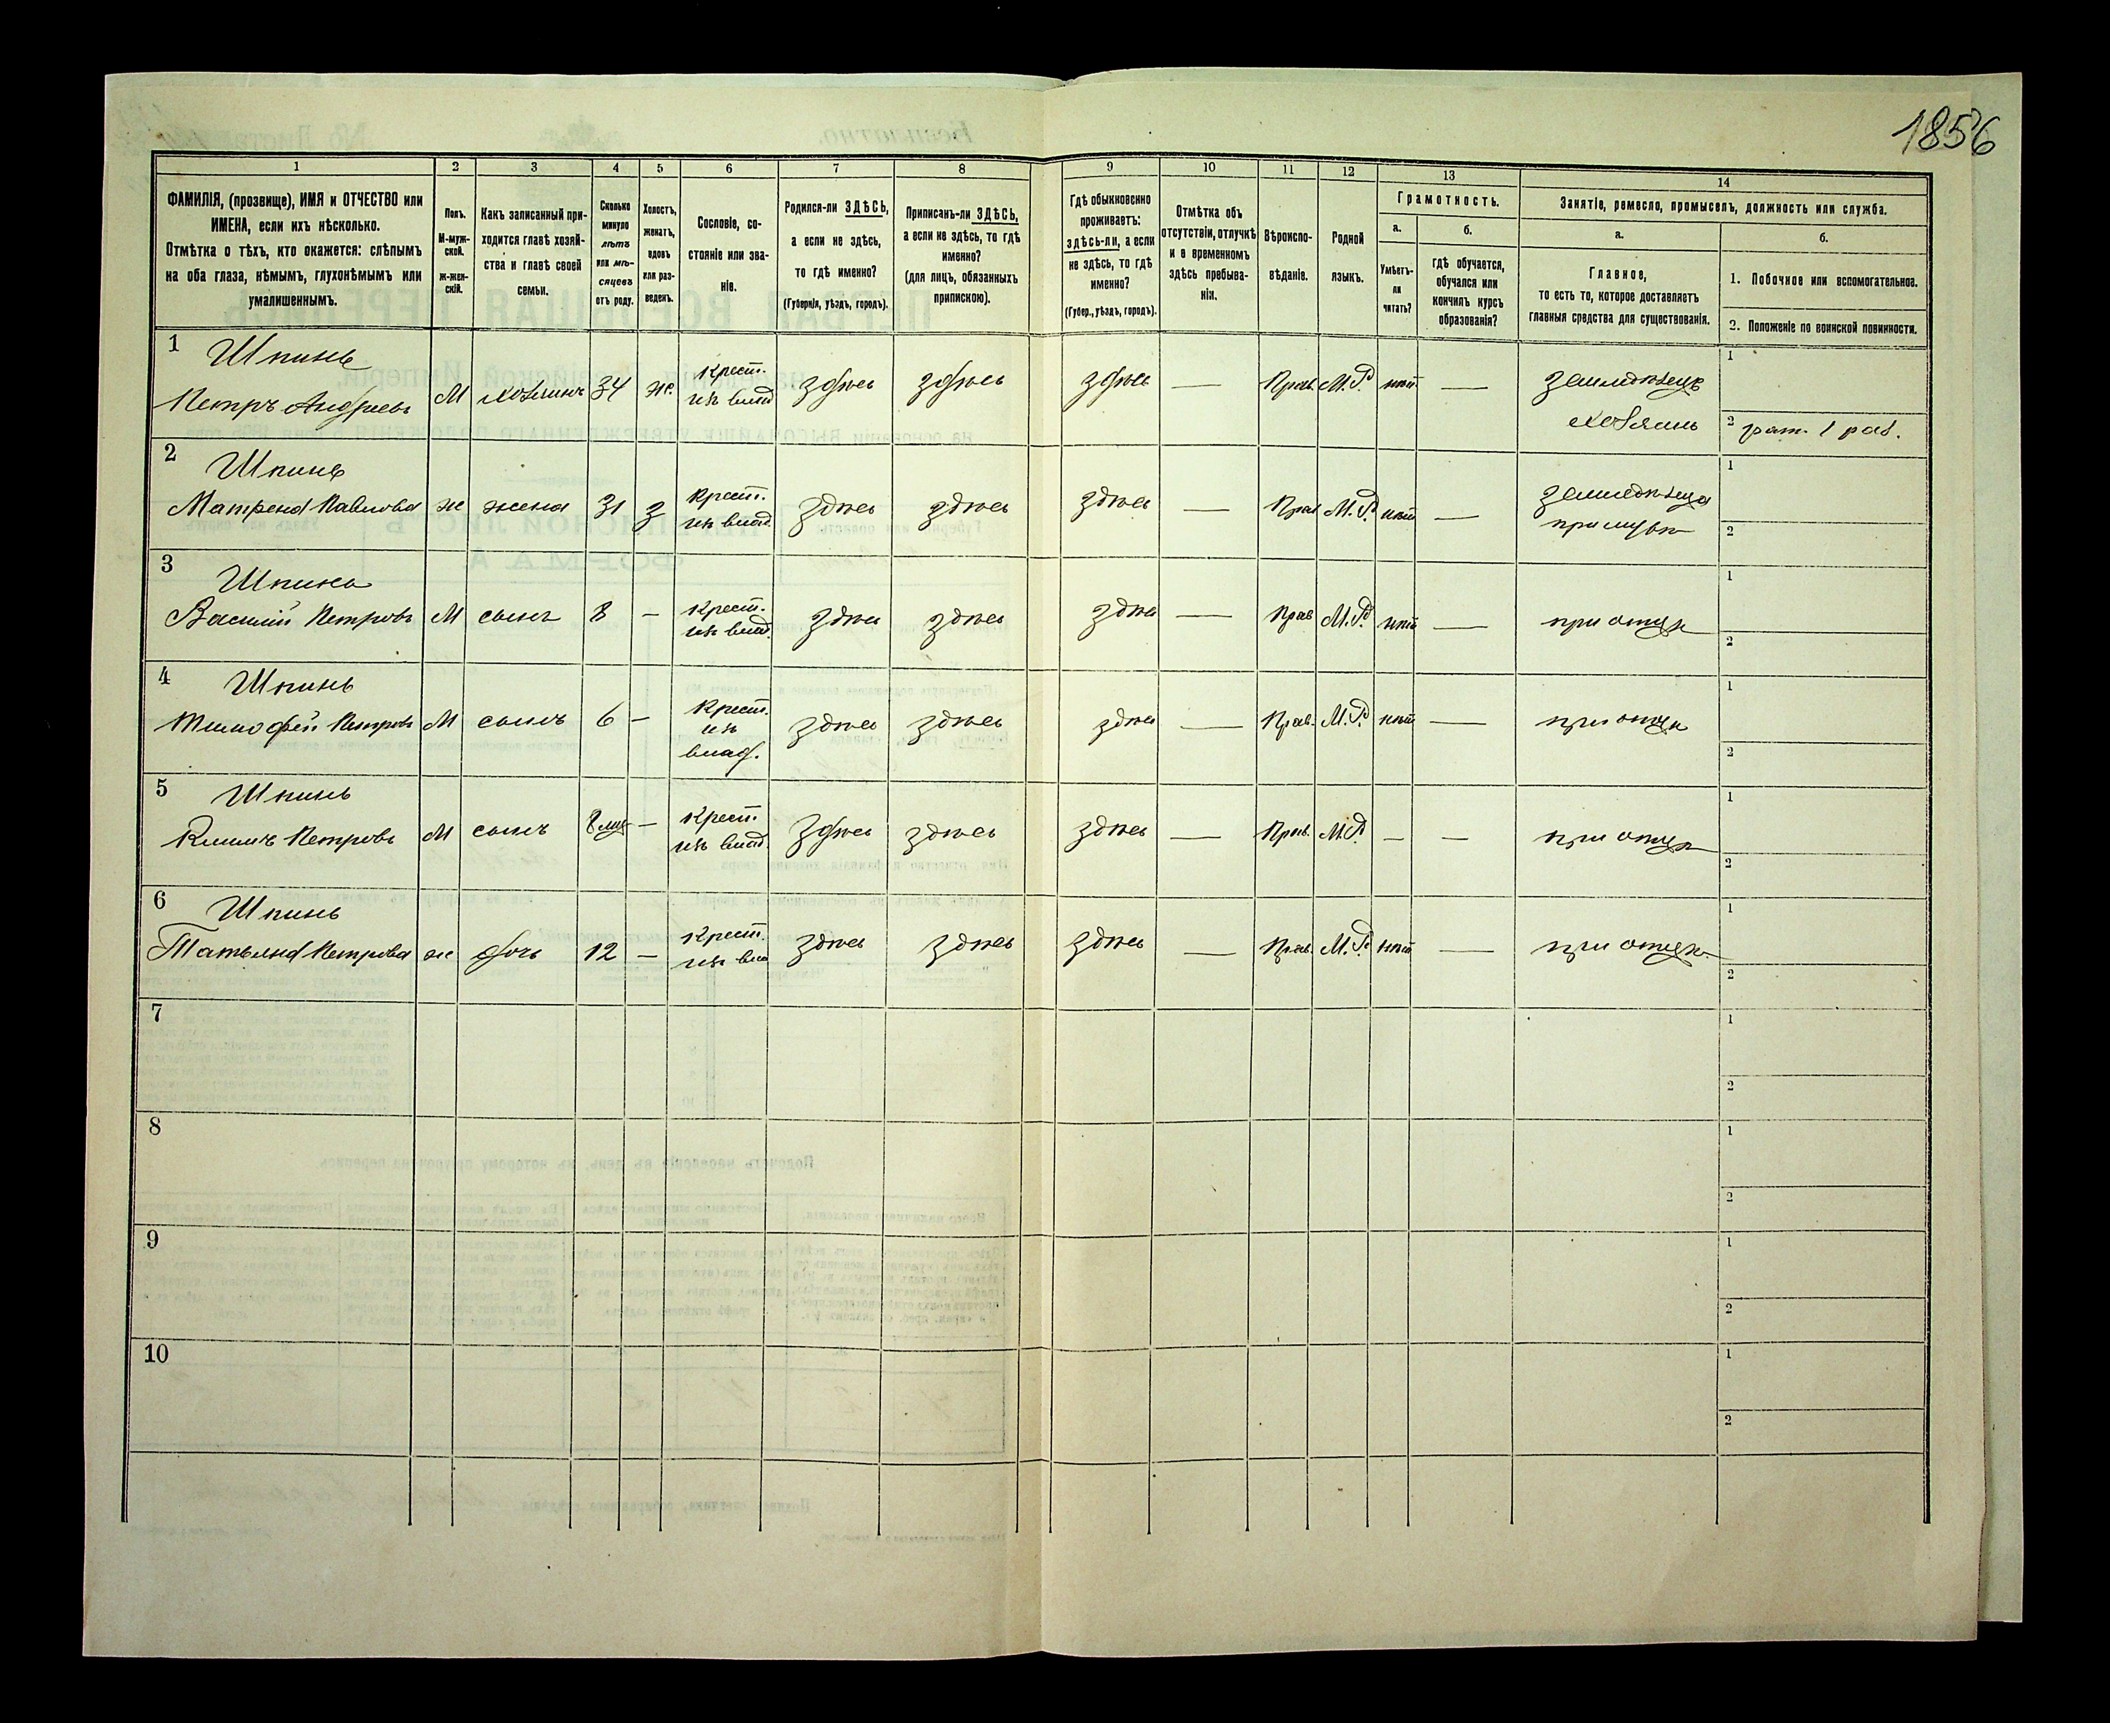 1856
1 2 3 4 5 6 7 8 9 10 11 12 13 14
ФАМИЛІЯ, (прозвище), ИМЯ и ОТЧЕСТВО или
ИМЕНА, если ихъ нѣсколько.
Отмѣтка о тѣхъ, кто окажется: слѣпымъ
на оба глаза, нѣмымъ, глухонѣмымъ или
умалишеннымъ.
Полъ.
М-муж-
ской.
ж-жен-
скій.
Какъ записанный при-
ходится главѣ хозяй-
ства и главѣ своей
семьи.
Сколько
минуло
лѣтъ
или мѣ-
сяцевъ
отъ роду.
Холостъ,
женатъ,
вдовъ
или раз-
веденъ.
Сословіе, со-
стояніе или зва-
ніе.
Родился-ли ЗДѢСЬ,
а если не здѣсь,
то гдѣ именно?
(Губернія, уѣздъ, городъ).
Приписанъ-ли ЗДѢСЬ,
а если не здѣсь, то гдѣ
именно?
(для лицъ, обязанныхъ
припискою).
Гдѣ обыкновенно
проживаетъ:
здѣсь-ли, а если
не здѣсь, то гдѣ
именно?
(Губер., уѣздъ, городъ).
Отмѣтка объ
отсутствіи, отлучкѣ
и о временномъ
здѣсь пребыва-
ніи.
Вѣроиспо-
вѣданіе.
Родной
языкъ.
Грамотность.
а.
Умѣетъ-
ли
читать?
б.
Гдѣ обучается,
обучался или
кончилъ курсъ
образованія?
Занятіе, ремесло, промыселъ, должность или служба.
а.
Главное,
то есть то, которое доставляетъ
главныя средства для существованія.
б.
1. Побочное или вспомогательное.
2. Положеніе по воинской повинности.
1 Шпинь
Петръ Андреевъ М хозяинъ 34 ж. Крест. изъ влад здѣсь здѣсь здѣсь — Прав. М.Р. нѣтъ — земледѣлецъ
хозяинъ
1
2 рат. 1 раз.
2 Шпинь
Матрена Павлова ж жена 31 з Крест. изъ влад. здѣсь здѣсь здѣсь — Прав М.Р. нѣтъ — земледѣлица
при мужѣ
1
2
3 Шпинь
Василій Петровъ М сынъ 8 — Крест. изъ влад. здѣсь здѣсь здѣсь — Прав М.Р. нѣтъ — при отцѣ
1
2
4 Шпинь
Тимофей Петровъ М сынъ 6 — Крест. изъ влад. здѣсь здѣсь здѣсь — Прав. М.Р. нѣтъ — при отцѣ
1
2
5 Шпинь
Климъ Петровъ М сынъ 8 мѣс — Крест. изъ влад. здѣсь здѣсь здѣсь — Прав. М.Р. — — при отцѣ
1
2
6 Шпинь
Татьяна Петрова ж дочь 12 — Крест. изъ вла здѣсь здѣсь здѣсь — Прав. М.Р. нѣтъ — при отцѣ
1
2
7
1
2
8
1
2
9
1
2
10
1
2